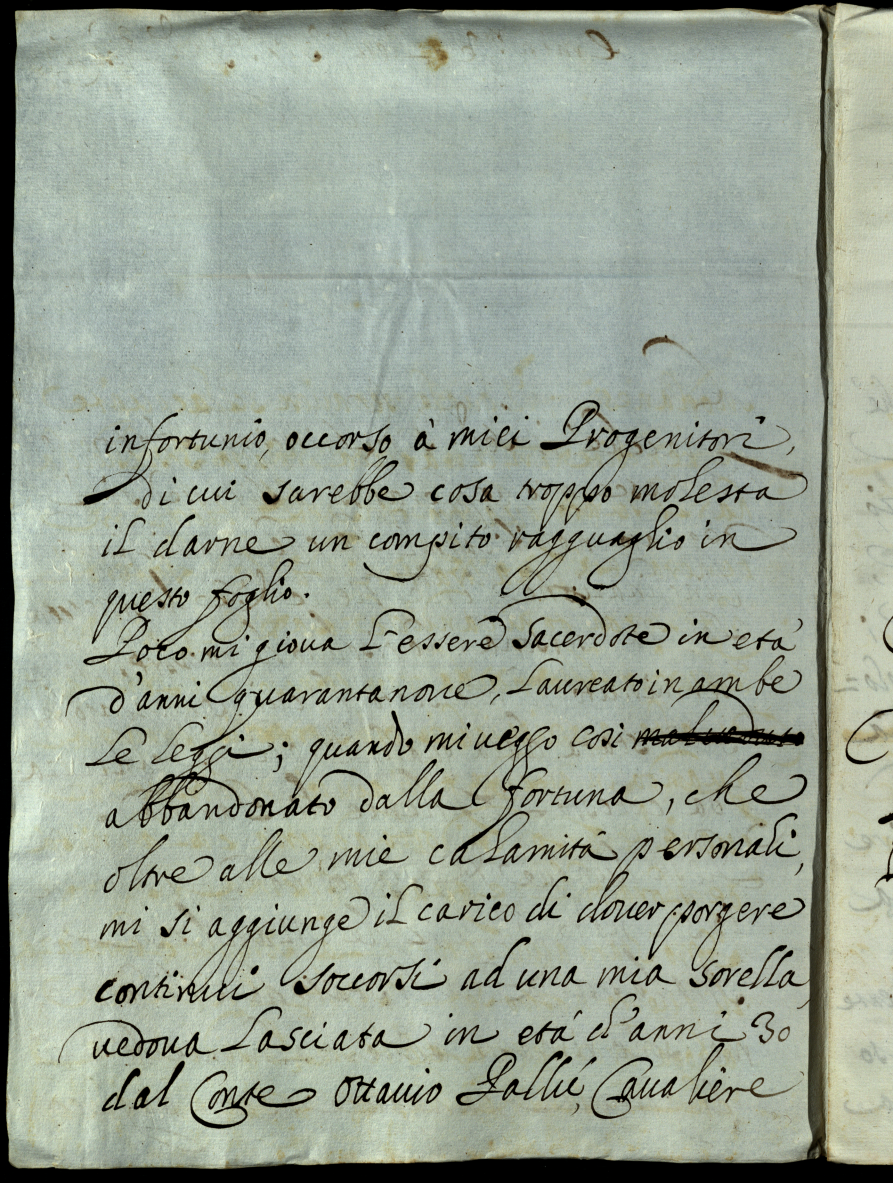 infortunio, occorso à miei Progenitori,
di cui sarebbe cosa troppo molesta
il darne un compito ragguaglio in
questo foglio.
Poco mi gioua l'essere Sacerdote in età
d'anni quarantanoue, Laureato in ambe
le leggi; quando mi ueggo così
abbandonato dalla fortuna, che
oltre alle mie calamità personali,
mi si aggiunge il carico di douer porgere
continui soccorsi ad una mia sorella,
uedoua lasciata in età d'anni 30
dal Conte Ottauio Caualiere